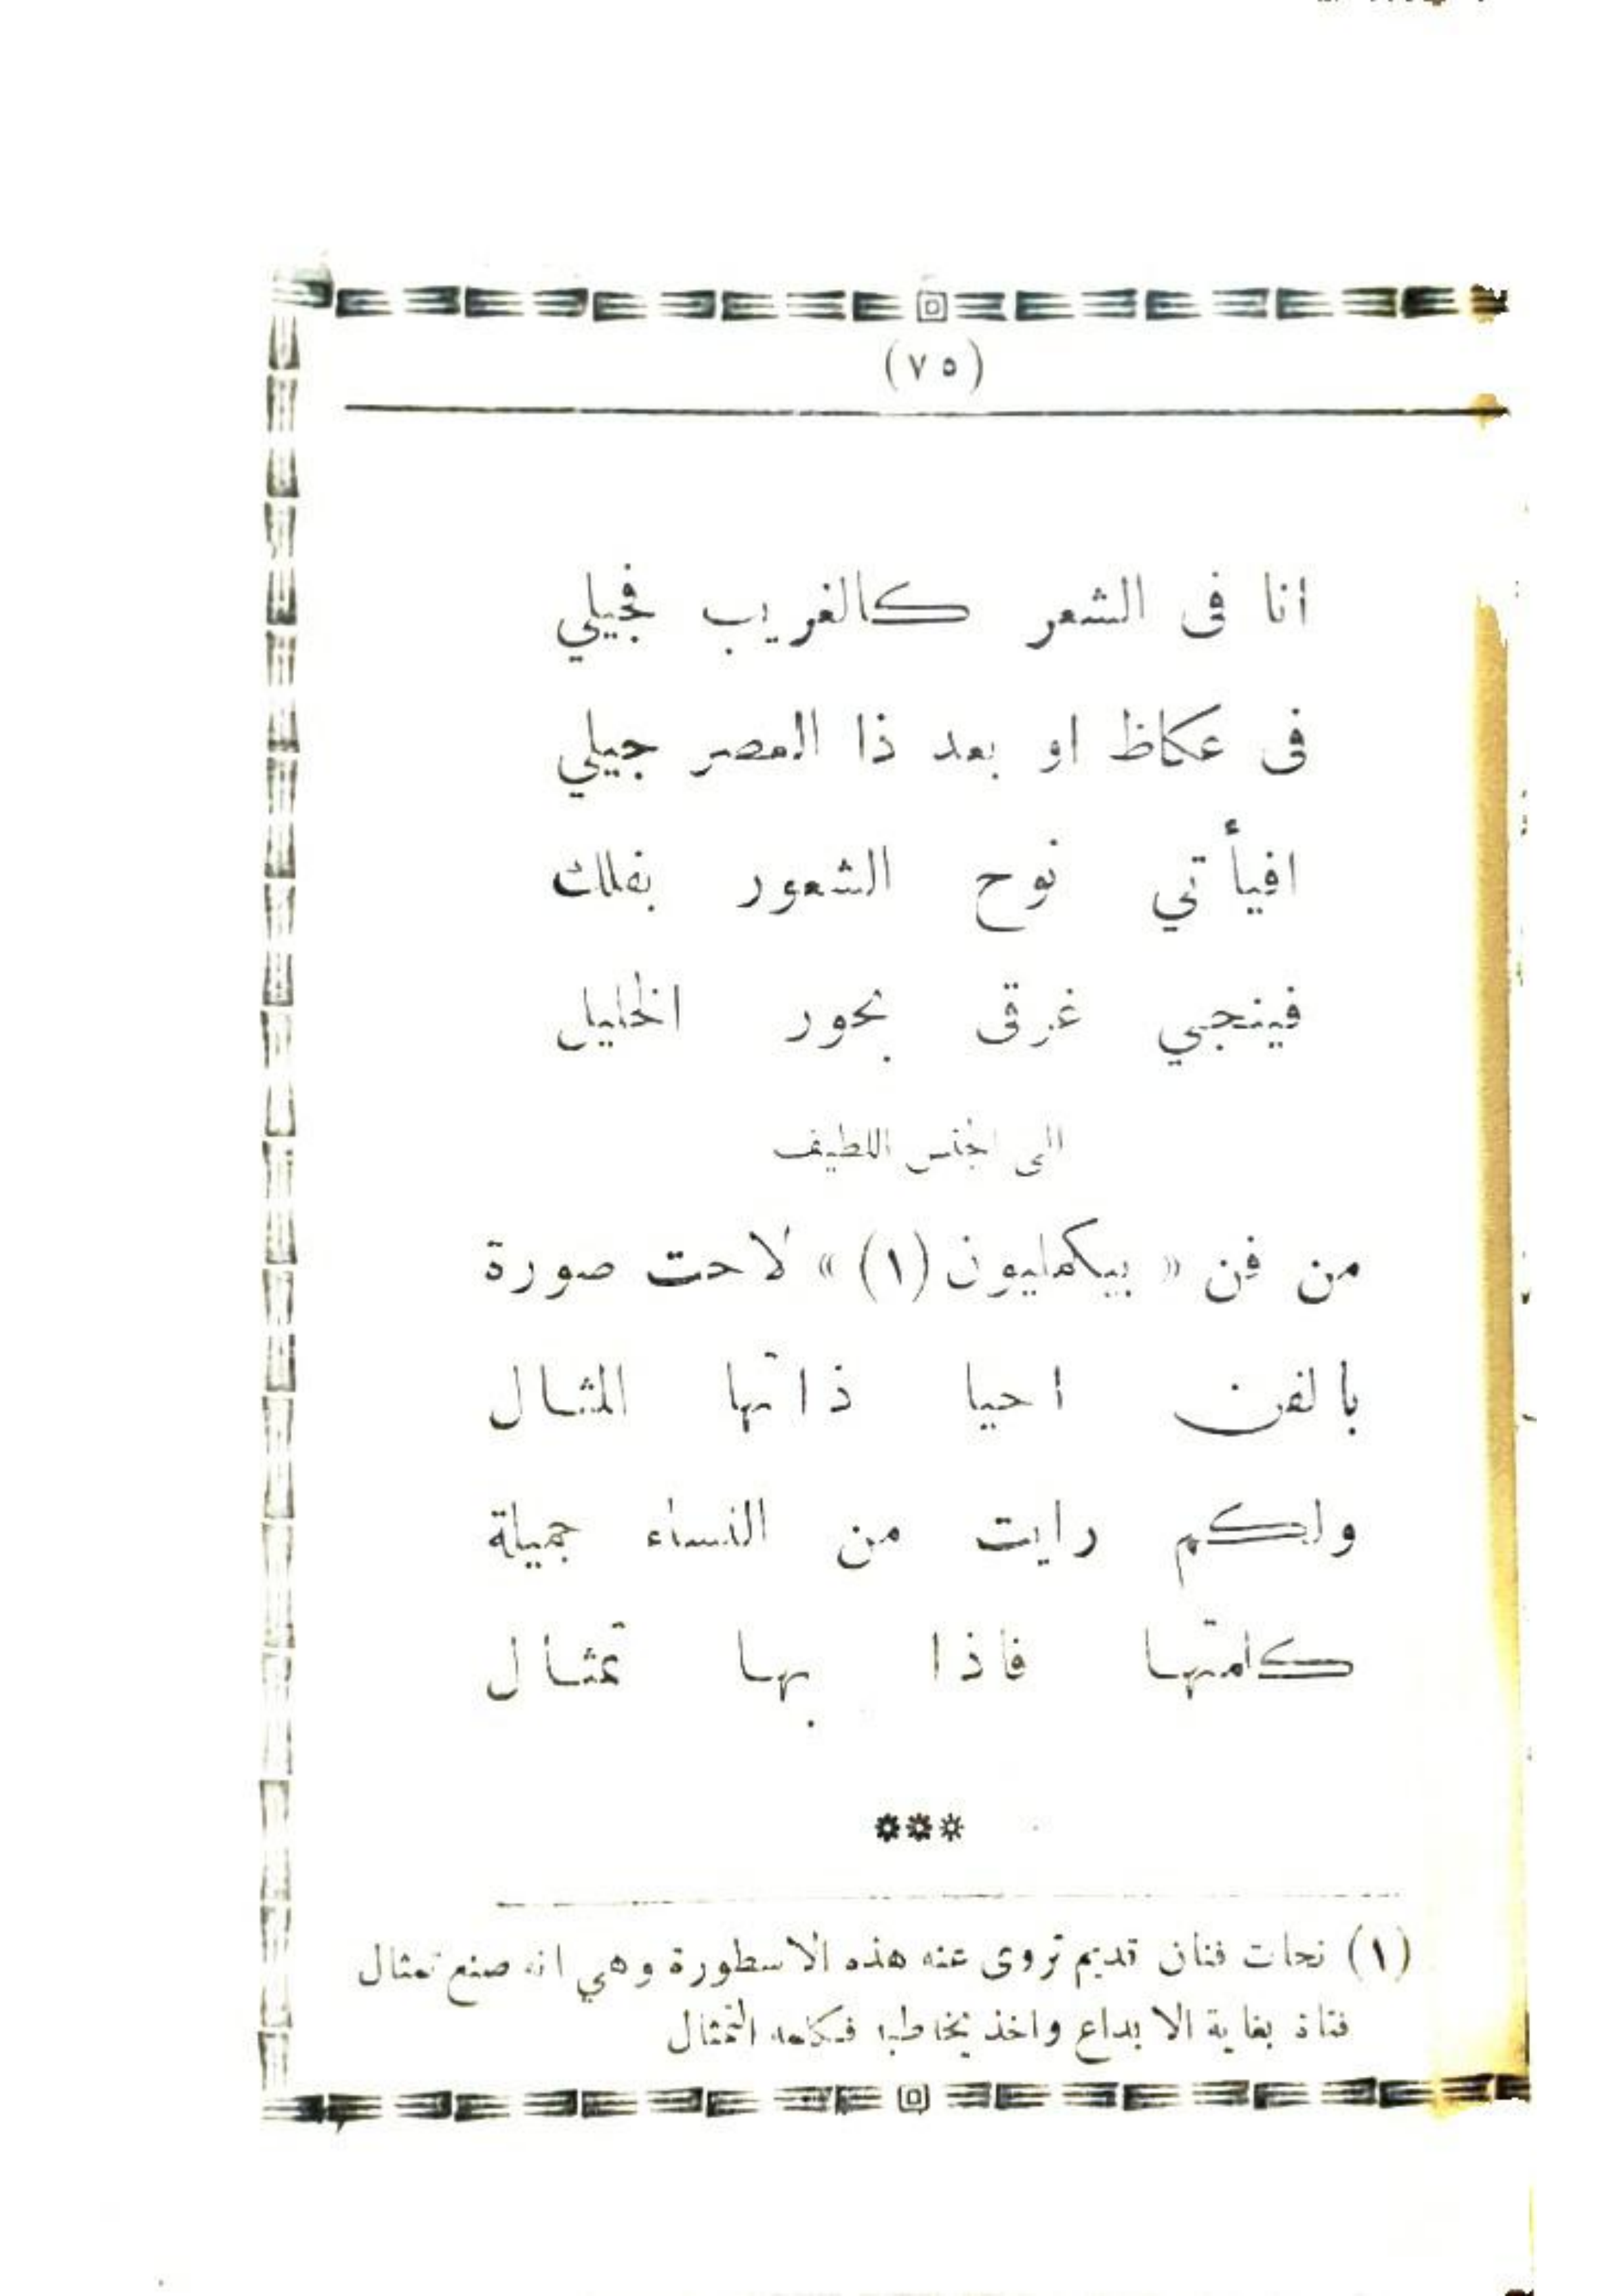 (٧٥)
انا فى الشعر كالغريب فجيلي
فى عكاظ او بعد ذا العصر جيلي
افيأتي نوح الشعور بفلك
فينجي غرقى بحور الخليل
الى الجنس اللطيف
من فن « بيكمليون (١) » لاحت صورة
بالفن احيا ذاتها المثال
ولكم رايت من النساء جميلة
كلمتها فاذا بها تمثال
***
(١) نحات فنان قديم تروى عنه هذه الاسطورة وهي انه صنع تمثال
فتاة بغاية الابداع واخذ يخاطبه فكلمه التمثال